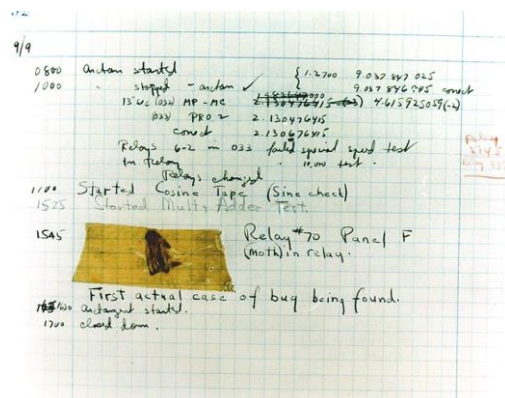 9/9
0800 Antan started
1000 " stopped - antan ✓ { 1.2700 9.037 847 025
9.037 846 995 conect
13"uc (032) MP - MC 2.130476415 4.615925059(-2)
(033) PRO 2 2.130476415
conect 2.130676415
Relays 6-2 in 033 failed special speed test
in relay " 11,000 test.
Relays changed
1100 Started Cosine Tape (Sine check)
1525 Started Mult+ Adder Test.
1545 Relay #70 Panel F
(moth) in relay.
First actual case of bug being found.
1630 antangent started.
1700 closed down.